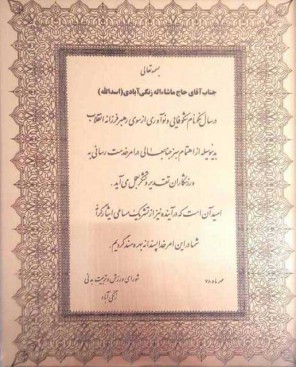 بسمه تعالی
جناب آقای حاج ماشاءاله زنگی آبادی (اسدالله)
در سال نوآوری و شکوفایی از سوی رهبر فرزانه انقلاب
بدینوسیله از اهتمام جنابعالی در امر خدمت رسانی به
ورزشکاران تقدیر و تشکر بعمل می آید.
امید آن است که در آینده نیز از تشریک مساعی ایثارگرانه
شما در این امر خداپسندانه بهره مند گردیم.
شورای ورزش و تربیت بدنی
زنگی آباد
مهر ماه ۸۷